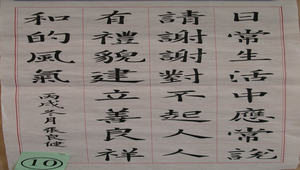 日常生活中應常說
請謝謝對不起人人
有禮貌建立善良祥
和的風氣
丙戌冬月張良健
10